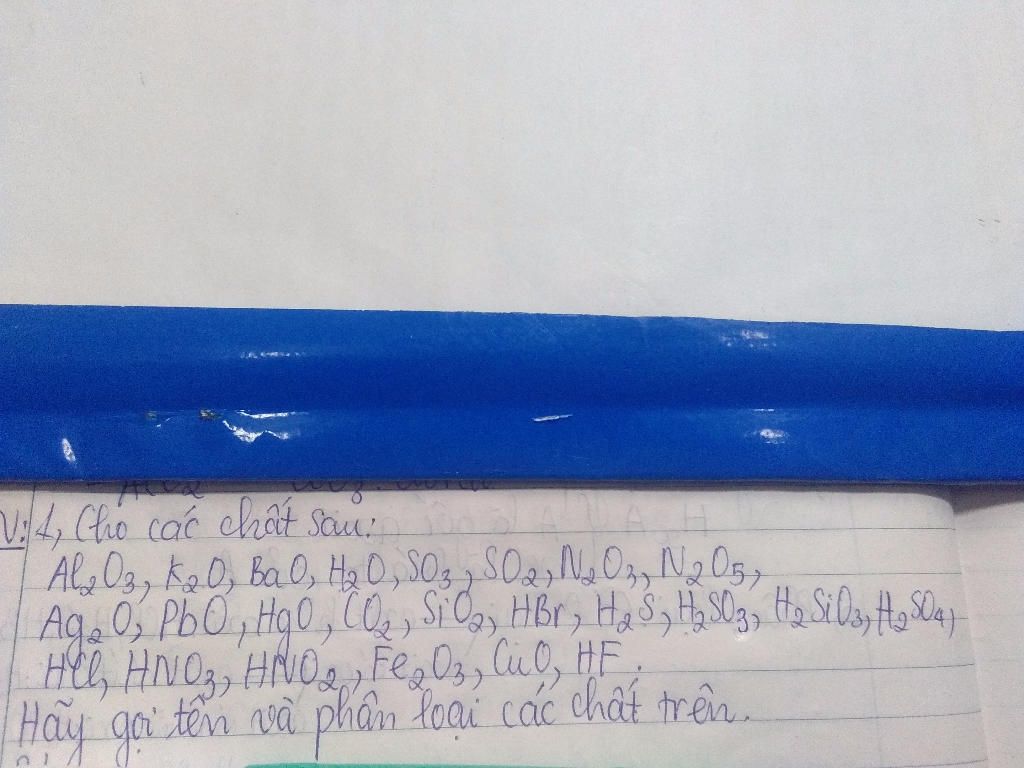 V: 1, Cho các chất sau:
Al₂O₃, K₂O, BaO, H₂O, SO₃, SO₂, N₂O₃, N₂O₅,
Ag₂O, PbO, HgO, CO₂, SiO₂, HBr, H₂S, H₂SO₃, H₂SiO₃, H₂SO₄,
HCl, HNO₃, HNO₂, Fe₂O₃, CuO, HF.
Hãy gọi tên và phân loại các chất trên.